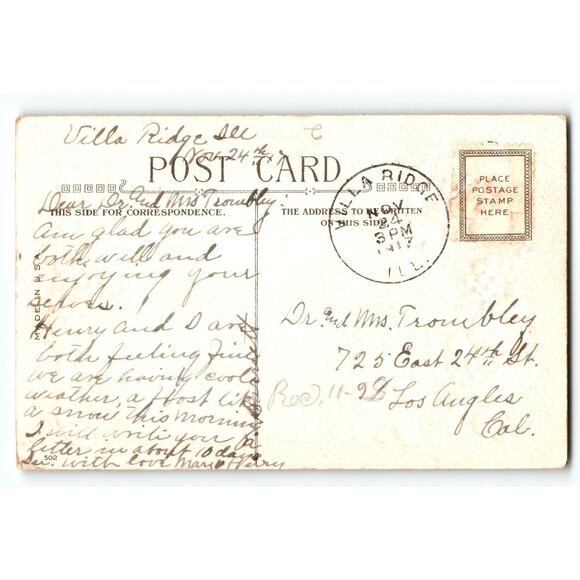 Villa Ridge Ill
Nov. 24th
POST CARD.
Dear Dr. And Mrs Trombley:
THIS SIDE FOR CORRESPONDENCE.
am glad you are
both well and
enjoying your
selves.
Henry and I are
both feeling fine
we are having cool
weather, a frost like
a snow this morning
I will write you a
letter in about 10 days
with love Marie Henry
MADE IN U.S.A.
502
THE ADDRESS TO BE WRITTEN
ON THIS SIDE
VILLA RIDGE
NOV
24
3 PM
1917
ILL.
PLACE
POSTAGE
STAMP
HERE
Dr. And Mrs. Trombley
725 East 24th St.
Rec. 11-28
Los Angles
Cal.